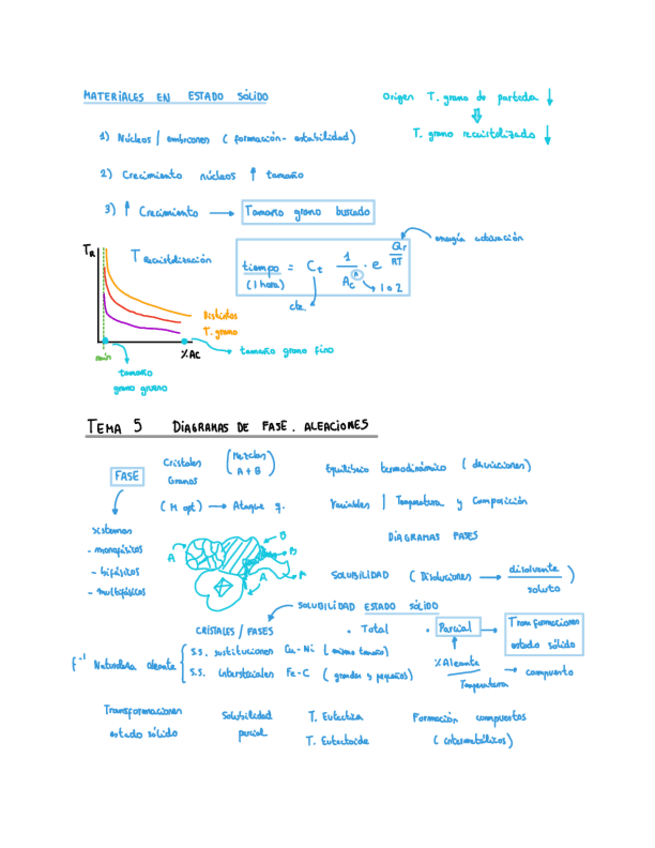 MATERIALES EN ESTADO SÓLIDO
Origen T. grano de partida ↓
T. grano recristalizado ↓
1) Núcleos / embriones ( formación - estabilidad)
2) Crecimiento núcleos ↑ tamaño
3) ↑ Crecimiento → Tamaño grano buscado
TR
T Recristalización
tiempo = Ct 1/Ac · e Qr/RT
(1 hora)
n → 1 o 2
cte.
energía activación
Distintos
T. grano
mín
%AC
tamaño grano fino
tamaño
grano grueso
TEMA 5 DIAGRAMAS DE FASE. ALEACIONES
FASE
Cristales
Granos
(Mezclas A + B)
(M opt) → Ataque q.
Sistemas
- monofásicos
- bifásicos
- multifásicos
A
B
B
A
A
Equilibrio termodinámico ( desviaciones)
Variables | Temperatura y Composición
DIAGRAMAS FASES
SOLUBILIDAD ( Disoluciones → disolvente / soluto )
SOLUBILIDAD ESTADO SÓLIDO
CRISTALES / FASES
• Total
• Parcial → Transformaciones estado sólido
f⁻¹ Naturaleza aleante
S.S. sustituciones Cu-Ni ( mismo tamaño)
S.S. intersticiales Fe-C ( grandes y pequeños)
%Aleante
Temperatura
→ compuesto
Transformaciones
estado sólido
Solubilidad
parcial
T. Eutéctica
T. Eutectoide
Formación compuestos
( intermetálicos)